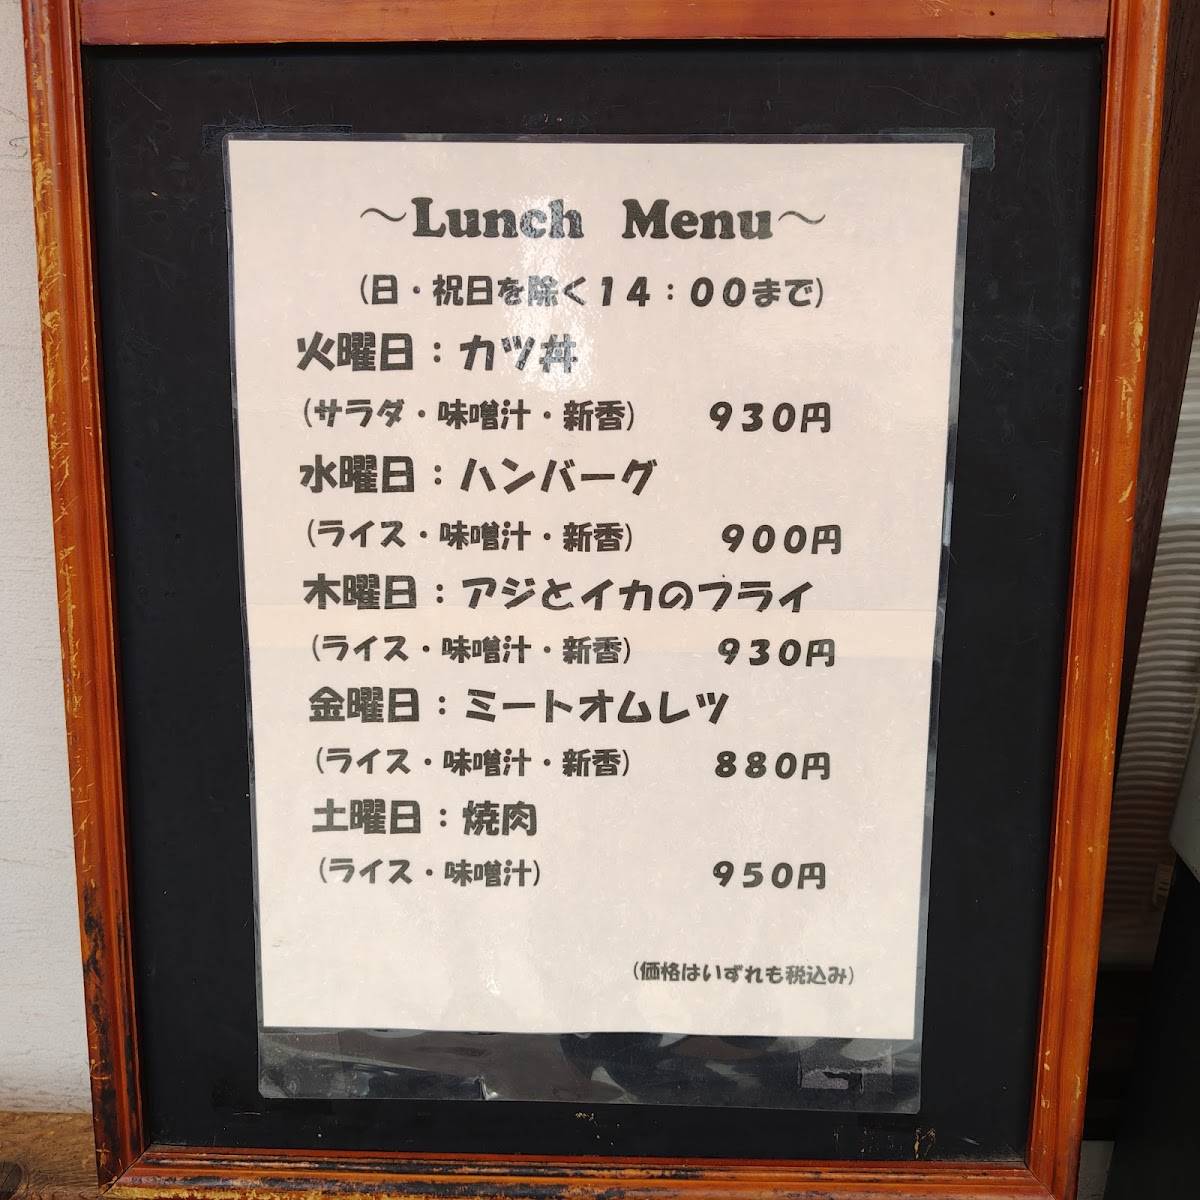 ～Lunch Menu～
(日・祝日を除く１４：００まで)
火曜日：カツ丼
(サラダ・味噌汁・新香) ９３０円
水曜日：ハンバーグ
(ライス・味噌汁・新香) ９００円
木曜日：アジとイカのフライ
(ライス・味噌汁・新香) ９３０円
金曜日：ミートオムレツ
(ライス・味噌汁・新香) ８８０円
土曜日：焼肉
(ライス・味噌汁) ９５０円
(価格はいずれも税込み)